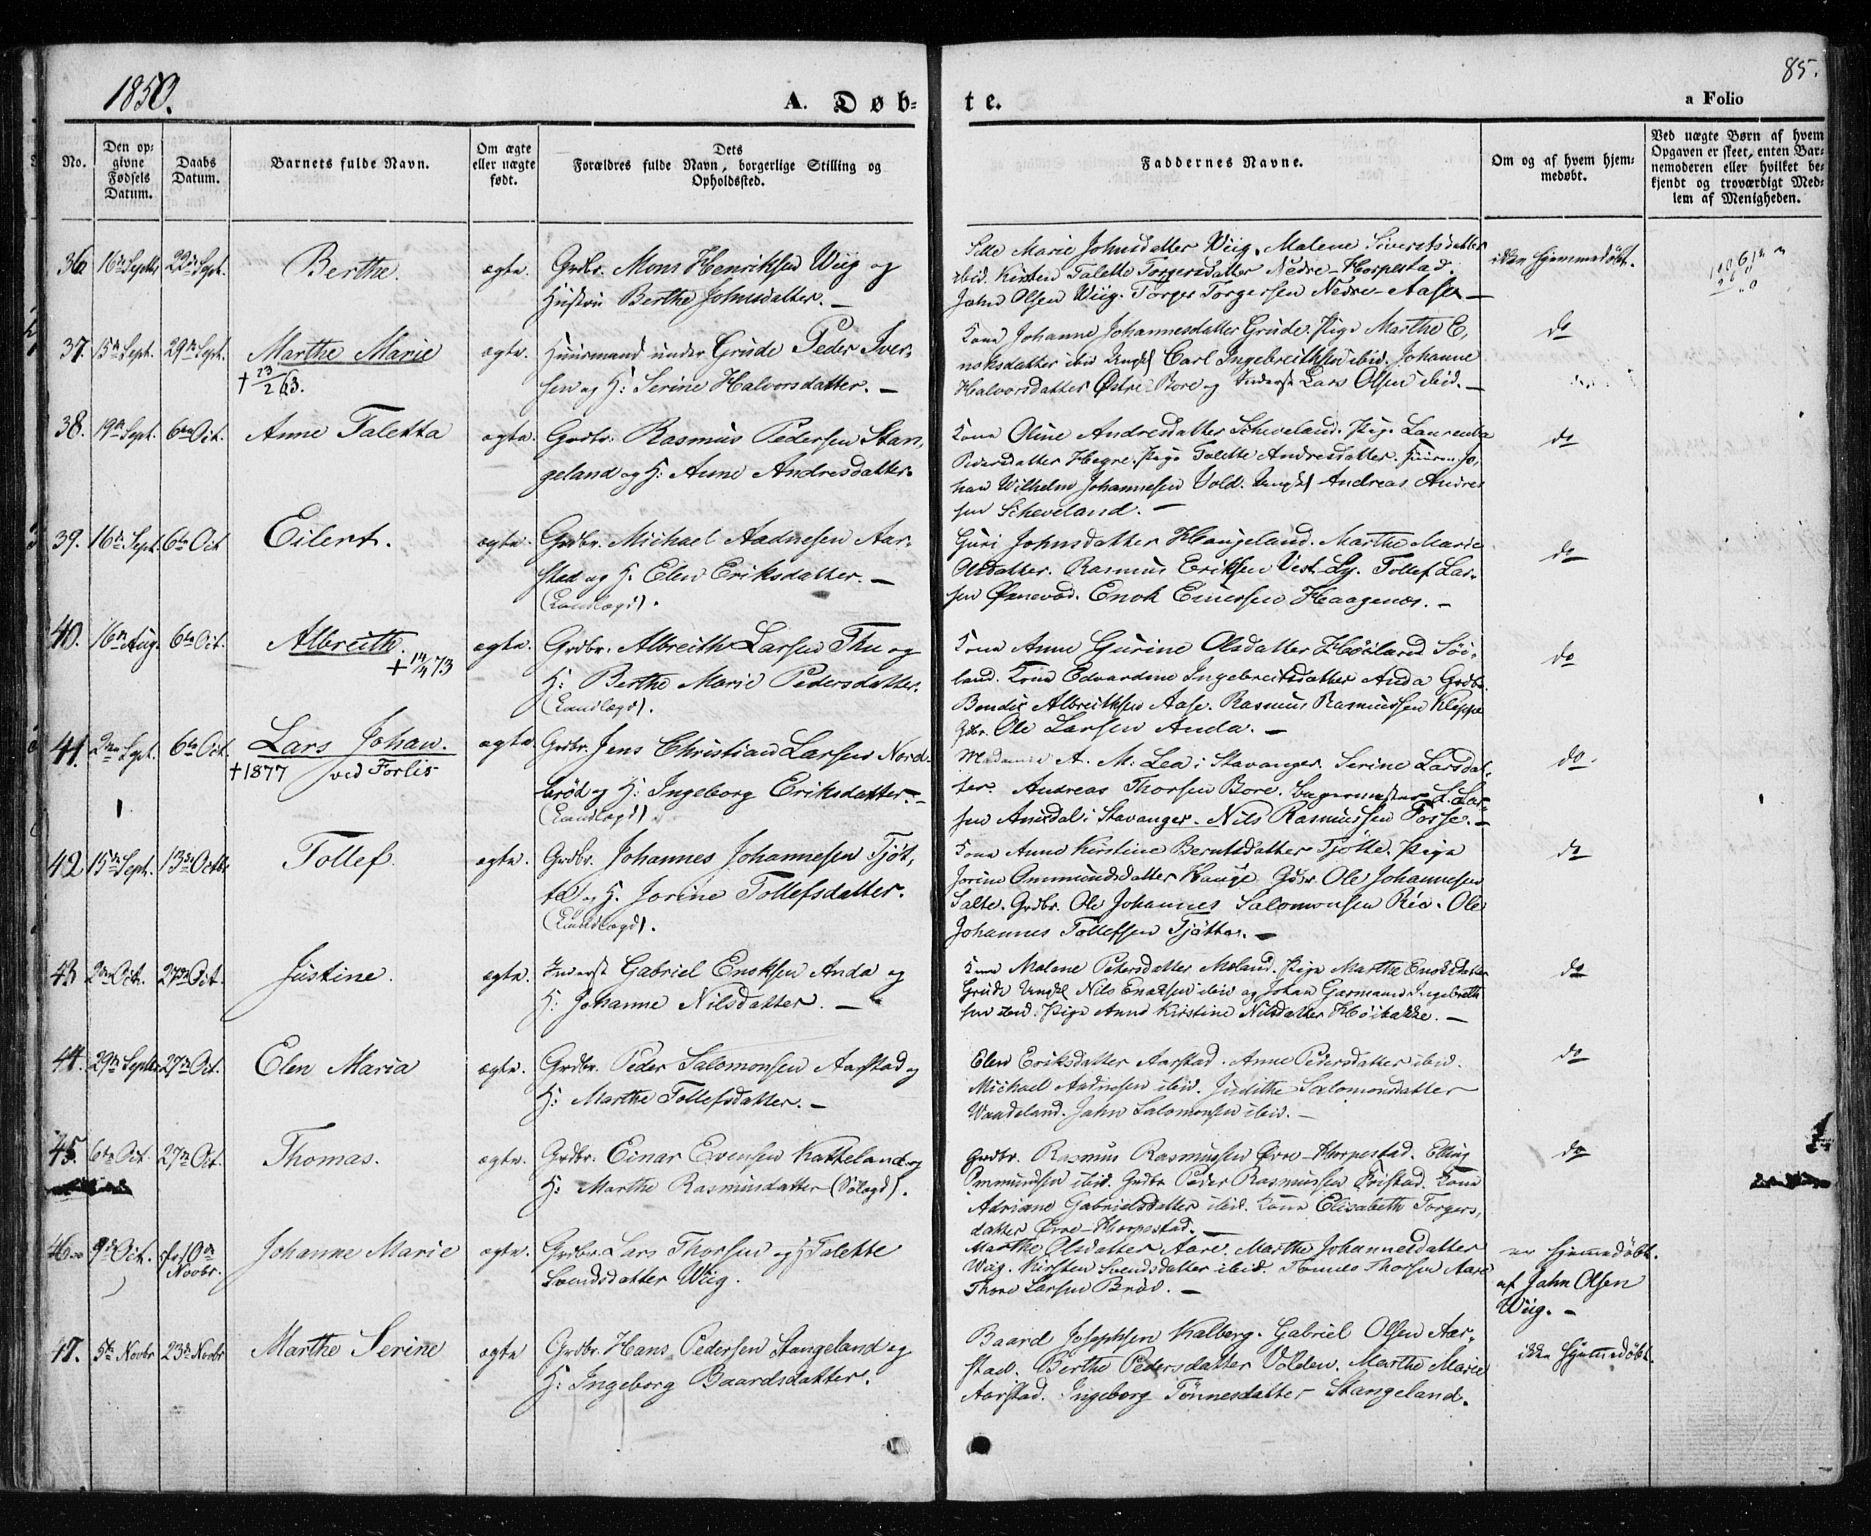 1850.
A. Døb-
te.
85.
a Folio
No.
Den op-
givne
Fødsels
Datum.
Daabs
Datum.
Barnets fulde Navn.
Om ægte
eller uægte
født.
Dets
Forældres fulde Navn, borgerlige Stilling og
Opholdssted.
Faddernes Navne.
Om og af hvem hjem-
medøbt.
Ved uægte Børn af hvem
Opgaven er skeet, enten Bar-
nemoderen eller hvilket be-
kjendt og troværdigt Med-
lem af Menigheden.
36 16de Septb 22de Sept. Berthe. ægte. Grdbr. Mons Henriksen Wiig og
Hustru Berthe Johnsdatter. —
Marie Johnsdatter Wiig. Malene Sivertsdatter
ibid. Kirsten Talette Torgersdatter Nedre-Horpestad.
John Olsen Wiig. Torger Torgersen Nedre-Aase —
ikke hjemmedøbt.
37. 15de Sept. 29de Sept. Marthe Marie ægte. Huusmand under Grude Peder Iver-
† 23/2 63. sen og H: Serine Halvorsdatter. —
Kone Johanne Johannesdatter Grude. Pige Marthe E,
noksdatter ibid Ungkl Carl Ingebreithsen ibid. Johanne
Halvorsdatter Østre Bore og Inderst Lars Olsen ibid. —
do
38. 19de Sept. 6te Oct. Anne Taletta ægte. Grdbr. Rasmus Pedersen Stan,
geland og H: Anne Andresdatter.
Kone Oline Andresdatter Scheveland. Pige Laurentza
Pedersdatter Hegre. Pige Talette Andresdatter. Huusm. Jo,
han Wilhelm Johannesen Vold. Ungkl Andreas Andres
sen Scheveland. —
do
39. 16de Sept. 6te Oct Eilert. ægte. Grdbr. Michael Aadnesen Aar-
sted og H. Elen Eriksdatter. —
(Landlægd).
Guri Johnsdatter Haugeland. Marthe Marie
Olsdatter. Rasmus Eriksen Vest-Ly. Tollef Lar-
sen Ørnevad. Enok Einersen Haagenæs. —
do
40. 16de Aug. 6te Oct. Albreith. ægte. Grdbr. Albreith Larsen Thu og
† 14/4 73 H: Berthe Marie Pedersdatter.
(Landlægd).
Kone Anne Gurine Olsdatter Høiland Søi-
land. Kone Edvardine Ingebreitsdatter Anda Grdbr.
Bendix Albreithsen Aase. Rasmus Rasmussen Kleppe
Gdbr. Ole Larsen Anda. —
do
41. 2den Sept. 6te Oct. Lars Johan. ægte Grdbr. Jens Christian Larsen Nord-
† 1877 ved Forlis brød og H: Ingeborg Eriksdatter. —
(Landlægd)
Madame A. M. Lea i Stavanger. Serine Larsdat,
ter. Andreas Thorsen Bore. Bagermester L. Lar-
sen Aarsdal i Stavanger. Nils Rasmussen Fosse. —
do.
42 15de Sept. 13de Octbr Tollef. ægte. Grdbr. Johannes Johannesen Tjøt,
ta og H. Jorine Tollefsdatter.
(Landlægd).
Kone Anne Kirstine Berntsdatter Tjøtte. Pige
Jorine Ommundsdatter Hauge Gdbr. Ole Johannesen
Salte. Grdbr. Ole Johannes Salomonsen Ree. Ole
Johannes Tollefsen Tjøtta. —
do
43 2den Oct. 27de Oct. Justine. ægte. Inderst Gabriel Enoksen Anda og
H: Johanne Nilsdatter. —
Kone Malene Petersdatter Meland. Pige Marthe Enoksdatter
Grude Ungkl Nils Enoksen ibid og Johan Garmann Ingebreth
sen ibid. Pige Anne Kirstine Nilsdatter Høibakke. —
do
44. 29de Septbr 27de Oct. Elen Maria ægte. Grdbr. Peder Salomonsen Aarstad og
H: Marthe Tollefsdatter. —
Elen Eriksdatter Aarstad. Anne Pedersdatter ibid.
Michael Aadnesen ibid. Judithe Salomonsdatter
Waadeland. John Salomonsen ibid. —
do
45. 6te Oct. 27de Oct. Thomas. ægte. Grdbr. Einar Evensen Katteland og
H: Marthe Rasmusdatter (Sølægd).
Grdbr. Rasmus Rasmussen Øvre-Horpestad. Elling
Ommundsen ibid. Grdbr Peder Rasmussen Friestad. Kone
Adriane Gabrielsdatter ibid. Kone Elisabeth Torgers,
datter Øvre-Horpestad. —
do
46 9de Oct. fr. 10de Novbr. Johanne Marie ægte. Grdbr. Lars Thorsen og H Talette
Svendsdatter Wiig.
Marthe Olsdatter Aare. Marthe Johannesdatter
Wiig. Kirsten Svendsdatter ibid. Tønnes Thorsen Aase
Thore Larsen Brød. —
er hjemmedøbt
af John Olsen
Wiig. —
47. 5te Novbr 23de Novbr Marthe Serine ægte Grdbr. Hans Pedersen Stangeland og
H: Ingeborg Baardsdatter.
Baard Josephsen Kalberg. Gabriel Olsen Aar-
stad. Berthe Pedersdatter Volden. Marthe Marie
Aarstad. Ingeborg Tønnesdatter Stangeland.
ikke hjemmedøbt.